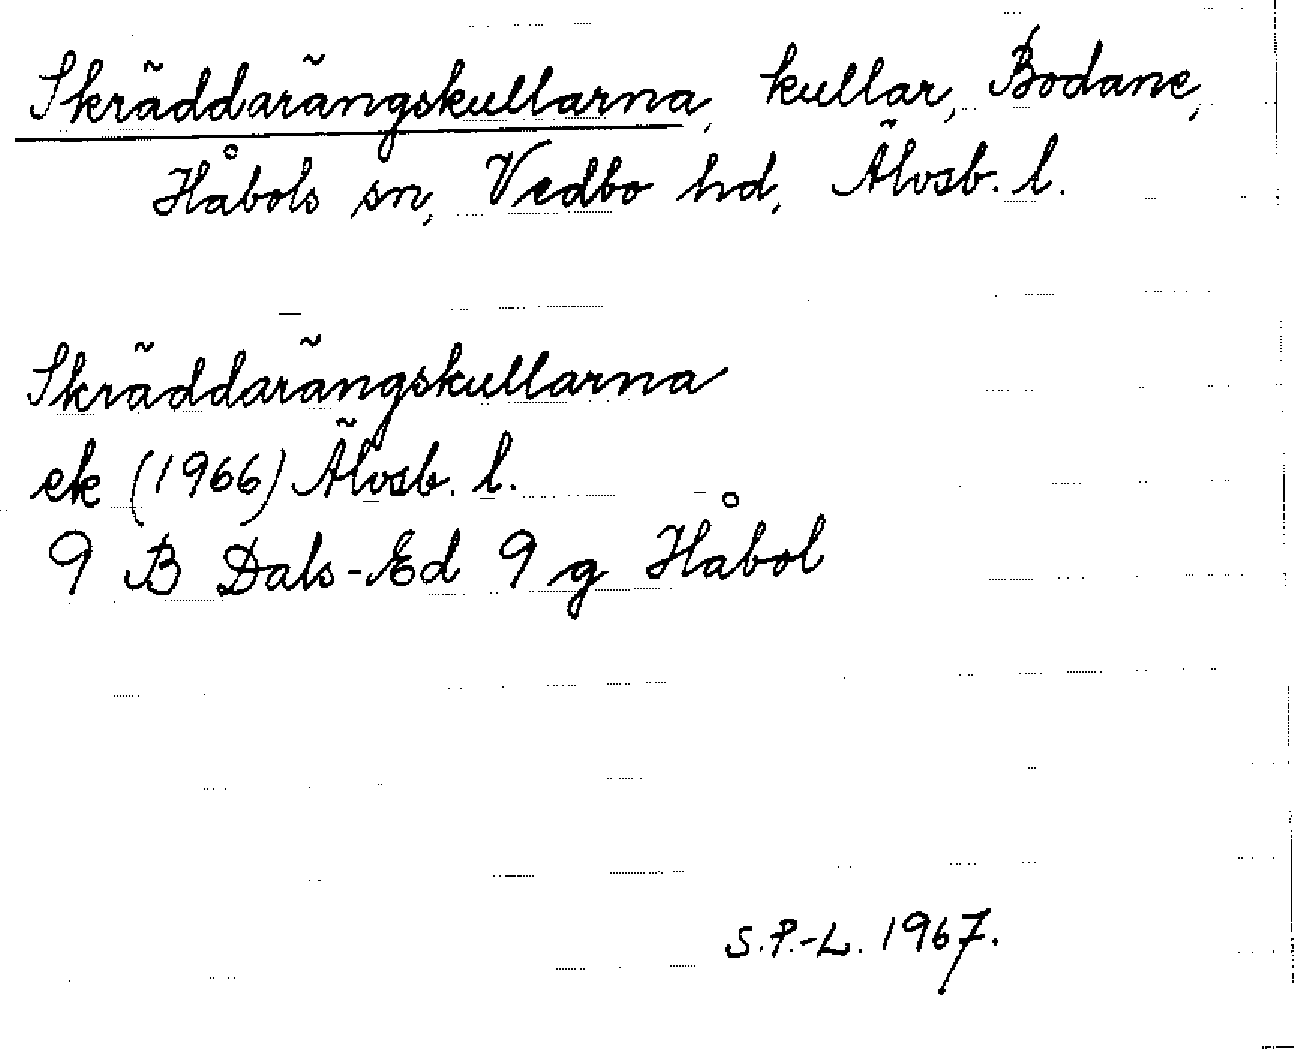 Skräddarängskullarna, kullar, Bodane,
Håbols sn, Vedbo hd, Älvsb. l.
Skräddarängskullarna
ek (1966) Älvsb. l.
9 B Dals-Ed 9 g Håbol
S.P.-L. 1967.